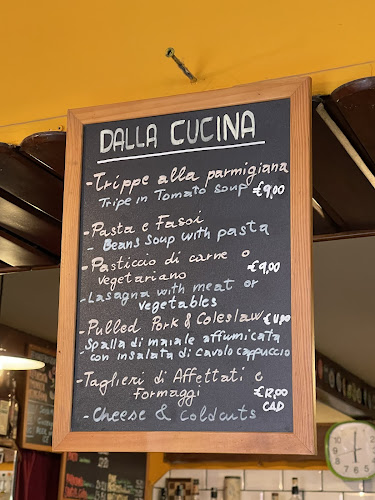 DALLA CUCINA
- Trippe alla parmigiana
Tripe in Tomato soup €9,00
- Pasta e Fasoi
- Beans soup with pasta
- Pasticcio di carne o
vegetariano €9,00
- Lasagna with meat or
vegetables
- Pulled Pork & Coleslaw
Spalla di maiale affumicata
con insalata di cavolo cappuccio
- Taglieri di Affettati e
formaggi
CAD
- Cheese & Coldcuts